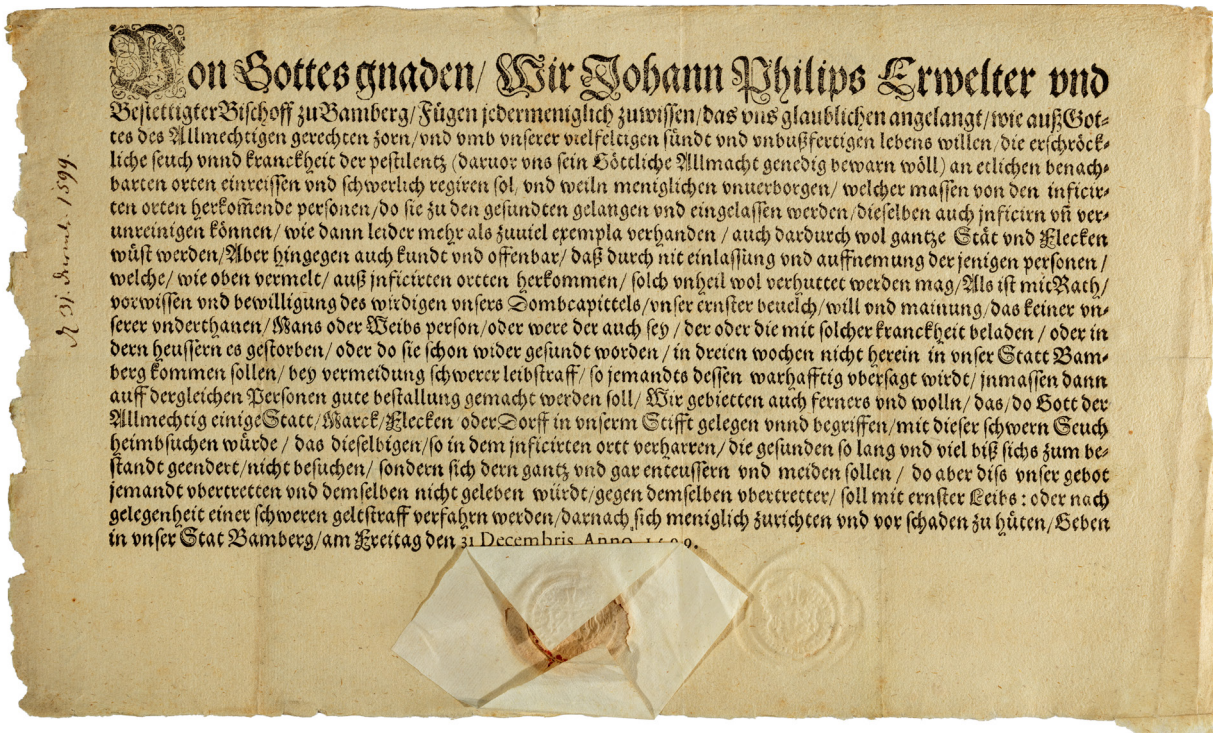 Von Gottes gnaden/ Wir Johann Philips Erwelter vnd
Bestettigter Bischoff zu Bamberg/ Fügen jedermeniglich zuwissen/ das vns glaublichen angelangt/ wie auß Got-
tes des Allmechtigen gerechten zorn/ vnd vmb vnserer vielfeltigen sündt vnd vnbußfertigen lebens willen/ die erschröck-
liche seuch vnnd kranckheit der pestilentz (daruor vns sein Göttliche Allmacht genedig bewarn wöll) an etlichen benach-
barten orten einreissen vnd schwerlich regiren sol/ vnd weiln meniglichen vnuerborgen/ welcher massen von den inficir-
ten orten herkom̄ende personen/ do sie zu den gesundten gelangen vnd eingelassen werden/ dieselben auch jnficirn vn̄ ver-
unreinigen können/ wie dann leider mehr als zuuiel exempla verhanden/ auch dardurch wol gantze Stät vnd Flecken
wüst werden/ Aber hingegen auch kundt vnd offenbar/ daß durch nit einlassung vnd auffnemung der jenigen personen/
welche/ wie oben vermelt/ auß jnficirten ortten herkommen/ solch vnheil wol verhuttet werden mag/ Als ist mit Rath/
vorwissen vnd bewilligung des wirdigen vnsers Dombcapittels/ vnser ernster beuelch/ will vnd mainung/ das keiner vn-
serer vnderthanen/ Mans oder Weibs person/ oder were der auch sey/ der oder die mit solcher kranckheit beladen/ oder in
dern heussern es gestorben/ oder do sie schon wider gesundt worden/ in dreien wochen nicht herein in vnser Statt Bam-
berg kommen sollen/ bey vermeidung schwerer leibstraff/ so jemandts dessen warhafftig vbersagt wirdt/ jnmassen dann
auff dergleichen Personen gute bestallung gemacht werden soll/ Wir gebietten auch ferners vnd wolln/ das/ do Gott der
Allmechtig einige Statt/ Marck/ Flecken oder Dorff in vnserm Stifft gelegen vnnd begriffen/ mit dieser schwern Seuch
heimbsuchen würde/ das dieselbigen/ so in dem jnficirten ortt verharren/ die gesunden so lang vnd viel biß sichs zum be-
standt geendert/ nicht besuchen/ sondern sich dern gantz vnd gar enteussern vnd meiden sollen/ do aber diss vnser gebot
jemandt vbertretten vnd demselben nicht geleben würdt/ gegen demselben vbertretter/ soll mit ernster Leibs: oder nach
gelegenheit einer schweren geltstraff verfahrn werden/ darnach sich meniglich zurichten vnd vor schaden zu hüten/ Geben
in vnser Stat Bamberg/ am Freitag den 31 Decembris Anno 1599.
31. 1599